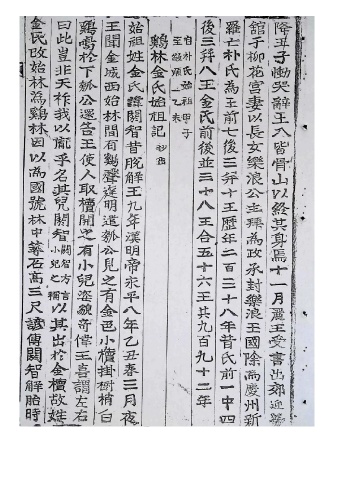 降王子慟哭辭王入皆骨山以終其身焉十一月麗王受書出郊迎
館于柳花宮妻以長女樂浪公主拜為政丞封樂浪王國除為慶州新
羅亡朴氏為王前七後三幷十王歷年二百三十八年昔氏前一中四
後三幷八王金氏前後並三十八王合五十六王共九百九十二年
自朴氏始祖甲子
至敬順一乙未
鷄林金氏始祖記
始祖姓金氏諱閼智昔脫解王九年漢明帝永平八年乙丑春三月夜
王聞金城西始林間有鷄聲遲明遣瓠公見之有金色小櫝掛樹梢白
鷄鳴於下瓠公還告王使人取櫝開之有小兒姿皃奇偉王喜謂左右
曰此豈非天祚我以胤乎名其兒閼智閼智方言小兒之稱以其出於金櫝故姓
金氏改始林為鷄林因以為國號林中石高三尺諺傳閼智解胎時